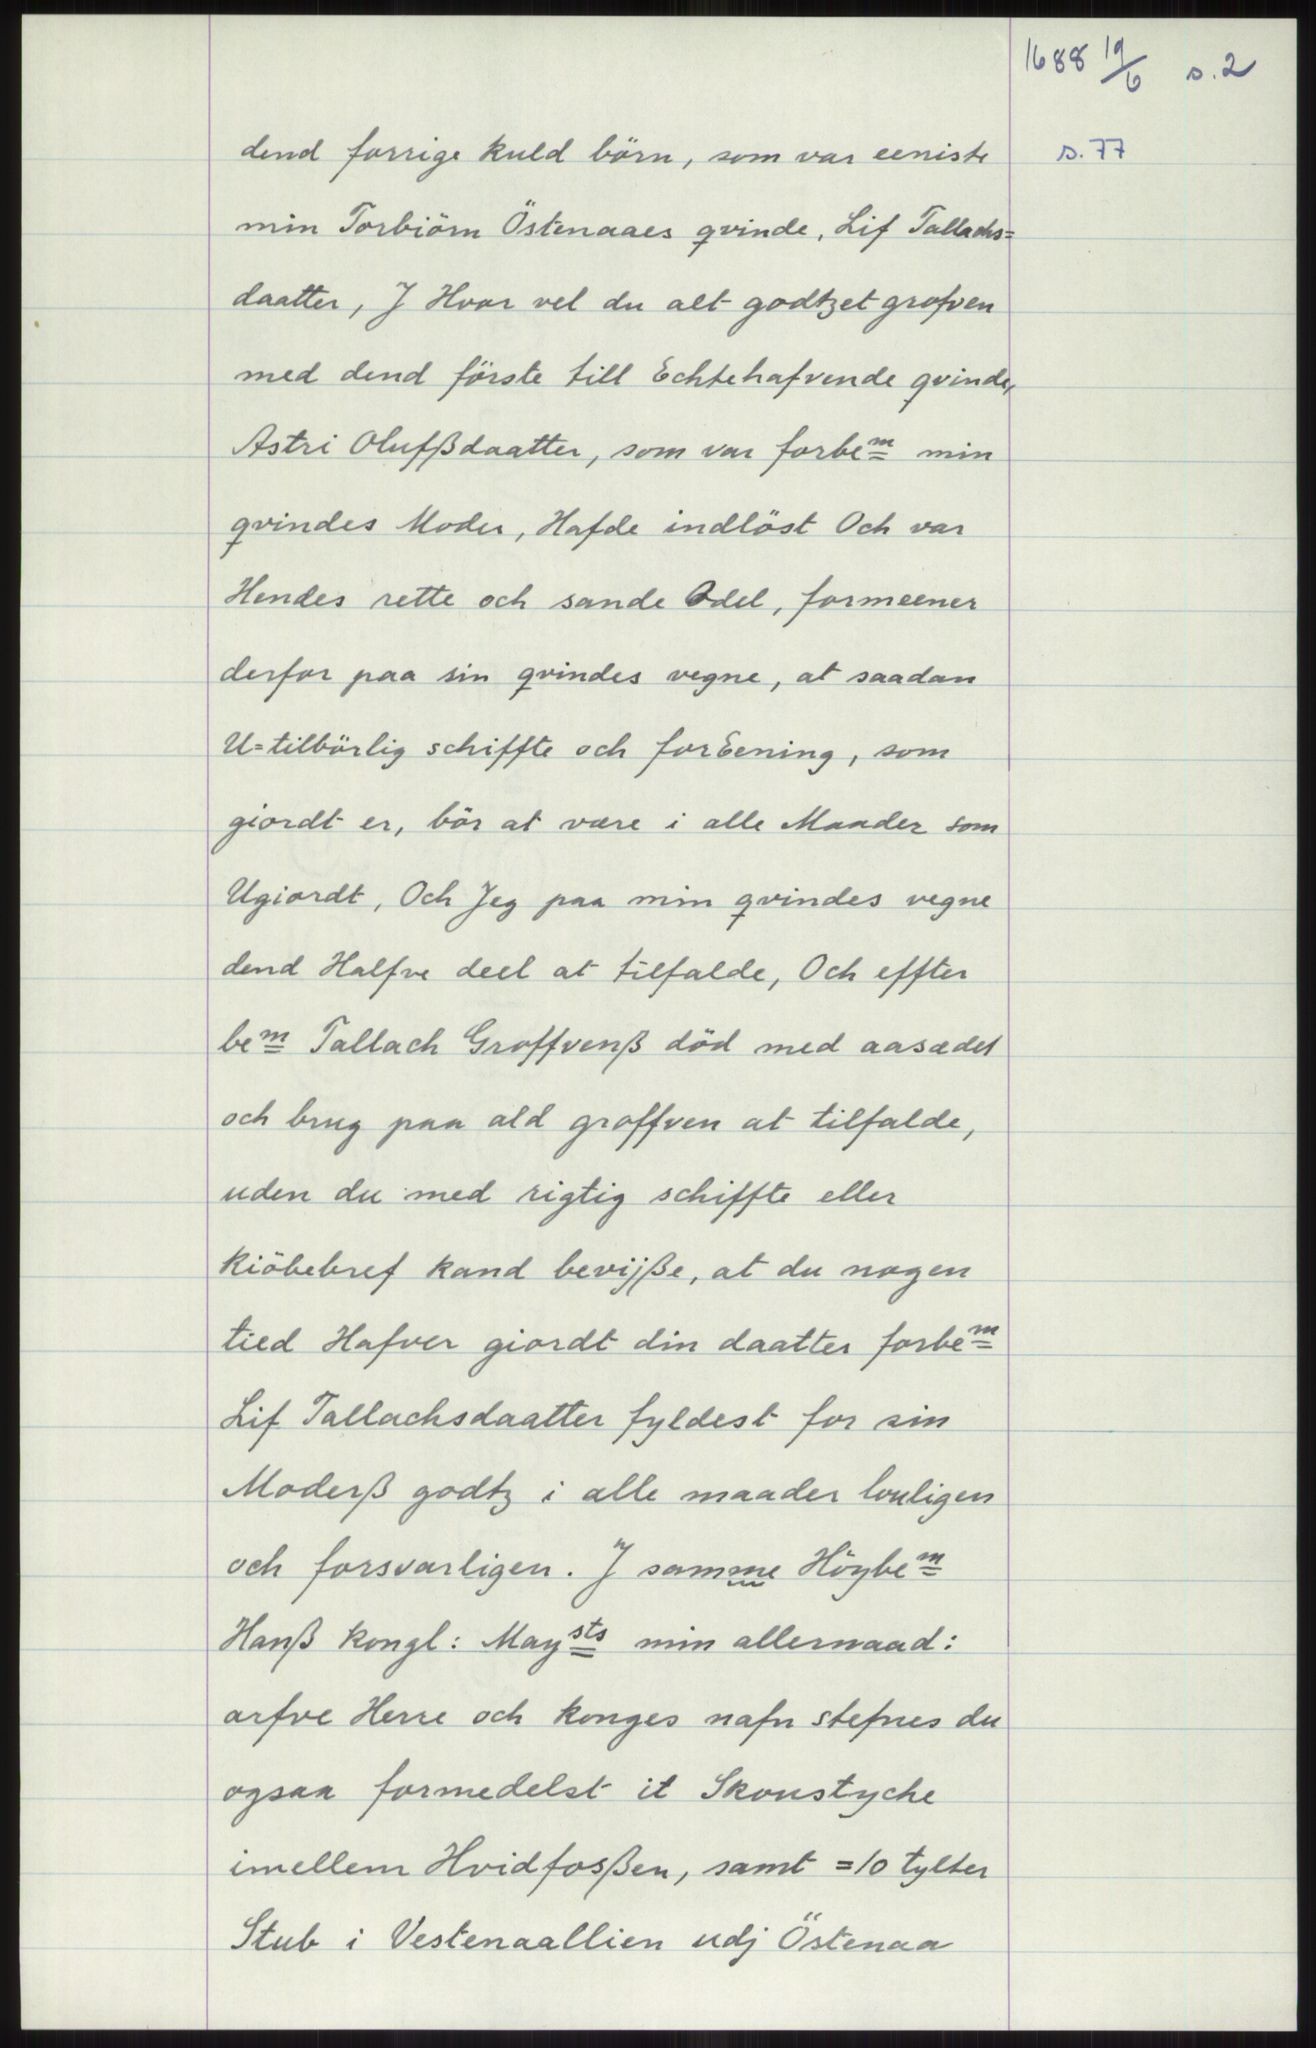 1688 19/6 s. 2
s. 77
dend forrige kuld börn, som var eeniste
min Torbiörn Östenaaes qvinde, Lif Tallachs=
daatter, J Hvor vel du alt godtzet grofven
med dend förste till Echtehafvende qvinde,
Astri Olufßdaatter, som var forbem min
qvindes Moder, Hafde indlöst Och var
Hendes rette och sande Odel, formeener
derfor paa sin qvindes vegne, at saadan
U=tilbörlig schiffte och forEening, som
giordt er, bör at være i alle Maader som
Ugiordt, Och Jeg paa min qvindes vegne
dend Halfve deel at tilfalde, Och effter
bem Tallach Groffvenß död med aasædet
och brug paa ald groffven at tilfalde,
uden du med rigtig schiffte eller
kiöbebref kand bevijße, at du nogen
tied Hafver giordt din daatter forbem
Lif Tallachsdaatter fyldest for sin
Moderß godtz i alle maader louligen
och forsvarligen. J samme Höybem
Hanß kongl: Maysts min allernaad:
arfve Herre och konges nafn stefnes du
ogsaa formedelst it Skoustyche
imellem Hvidfosßen, samt =10 tylter
Stub i Vestenaallien udj Östenaa